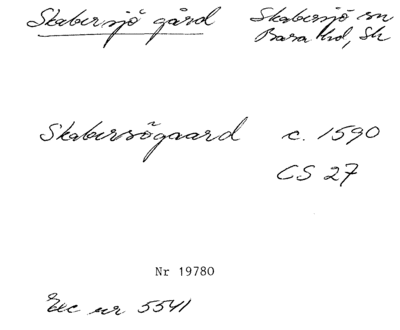 Skabersjö gård Skabersjö sn
Bara hd, Sk
Skabersögaard c. 1590
CS 27
Nr 19780
Exc nr 5541